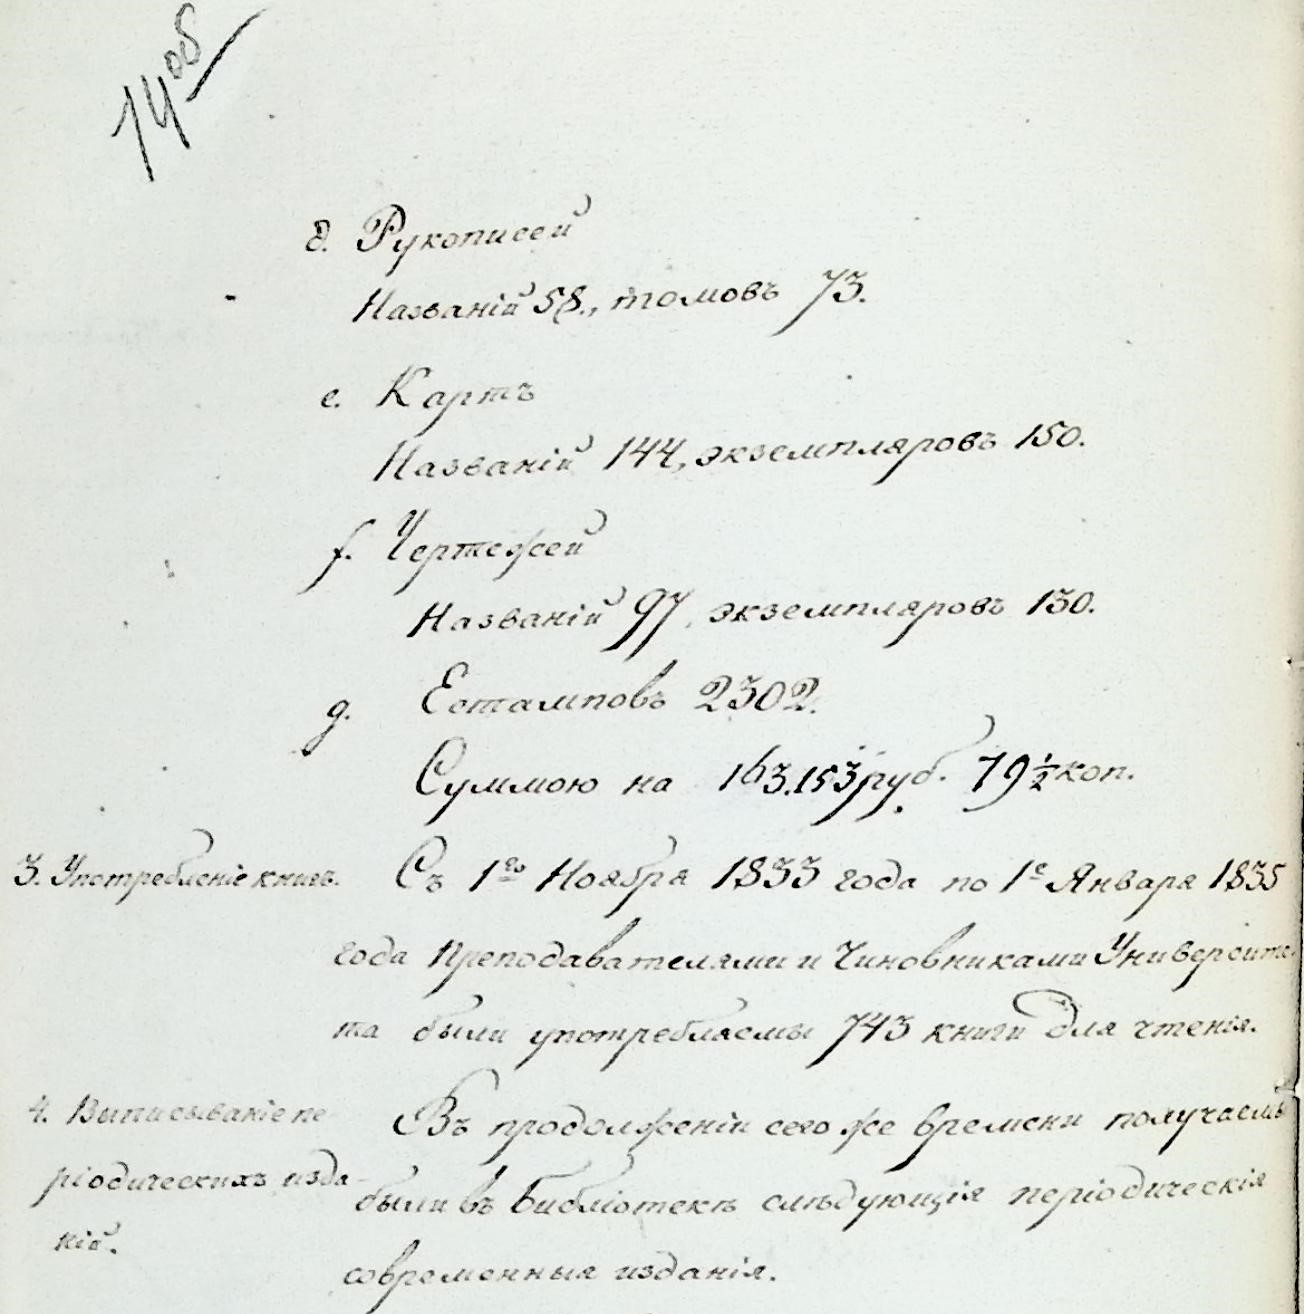 74об
д. Рукописей
Названій 58., томовъ 73.
е. Картъ
Названій 144, экземпляровъ 150.
f. Чертежей
Названій 97, экземпляровъ 130.
g. Естамповъ 2302.
Суммою на 163.153 руб. 79 1/2 коп.
3. Употребленіе книгъ. Съ 1го Ноября 1833 года по 1е Января 1835
года Преподавателями и Чиновниками Университе
та были употребляемы 743 книги для чтенія.
4. Выписываніе пе Въ продолженіи сего же времени получаемы
ріодическихъ изда- были въ Библіотекѣ слѣдующія періодическія
ній. современныя изданія.